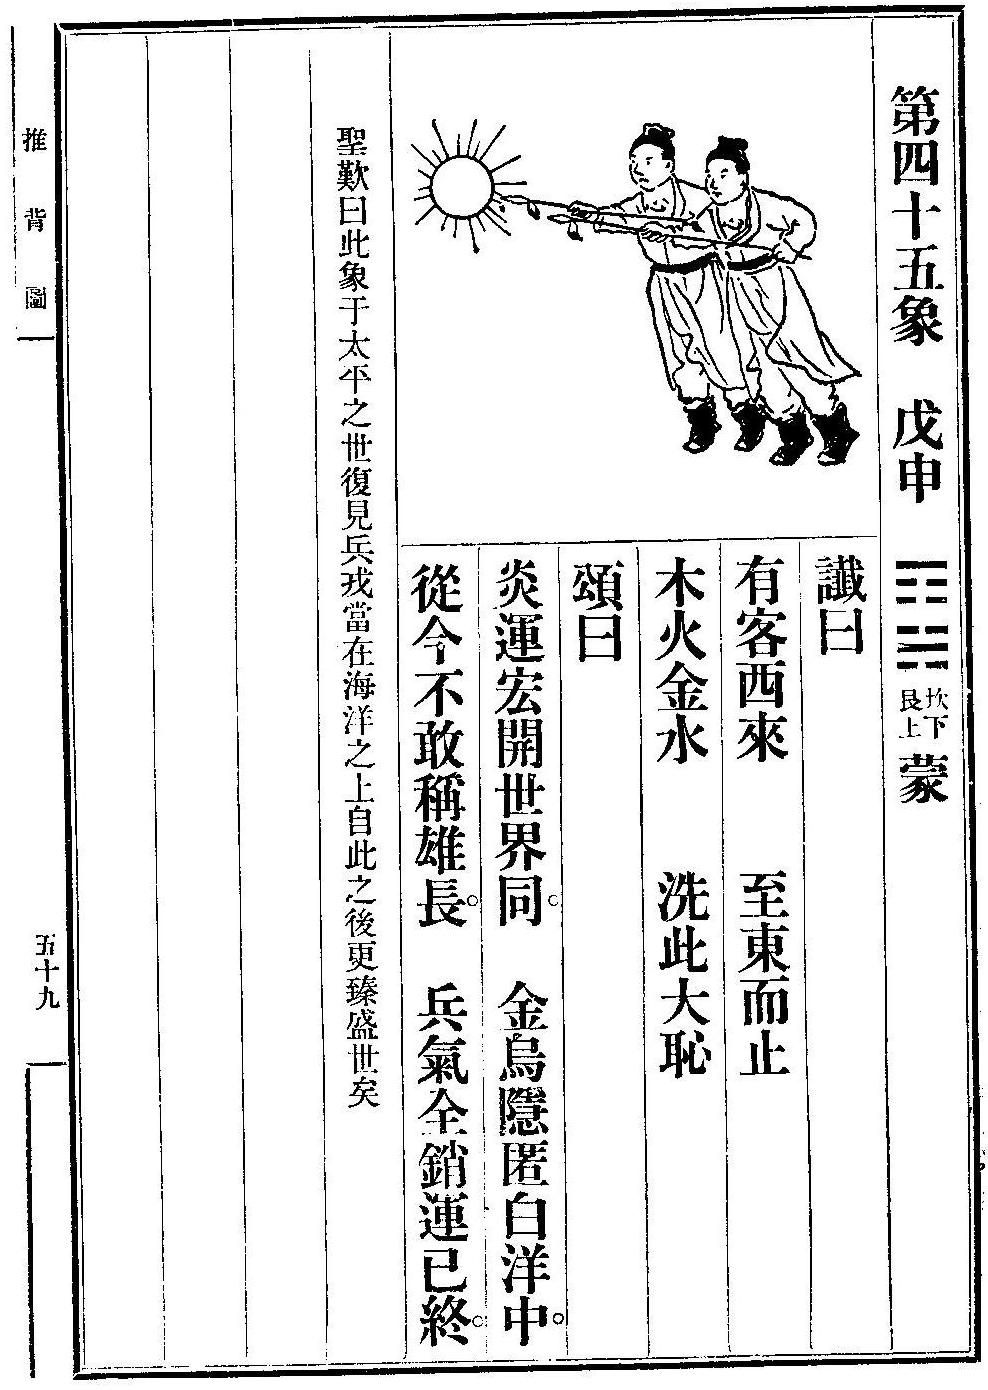 第四十五象　戊申　坎下艮上　蒙
讖曰
有客西來　至東而止
木火金水　洗此大恥
頌曰
炎運宏開世界同。　金烏隱匿白洋中。
從今不敢稱雄長。　兵氣全銷運已終。
聖歎曰此象于太平之世復見兵戎當在海洋之上自此之後更臻盛世矣
推背圖
五十九